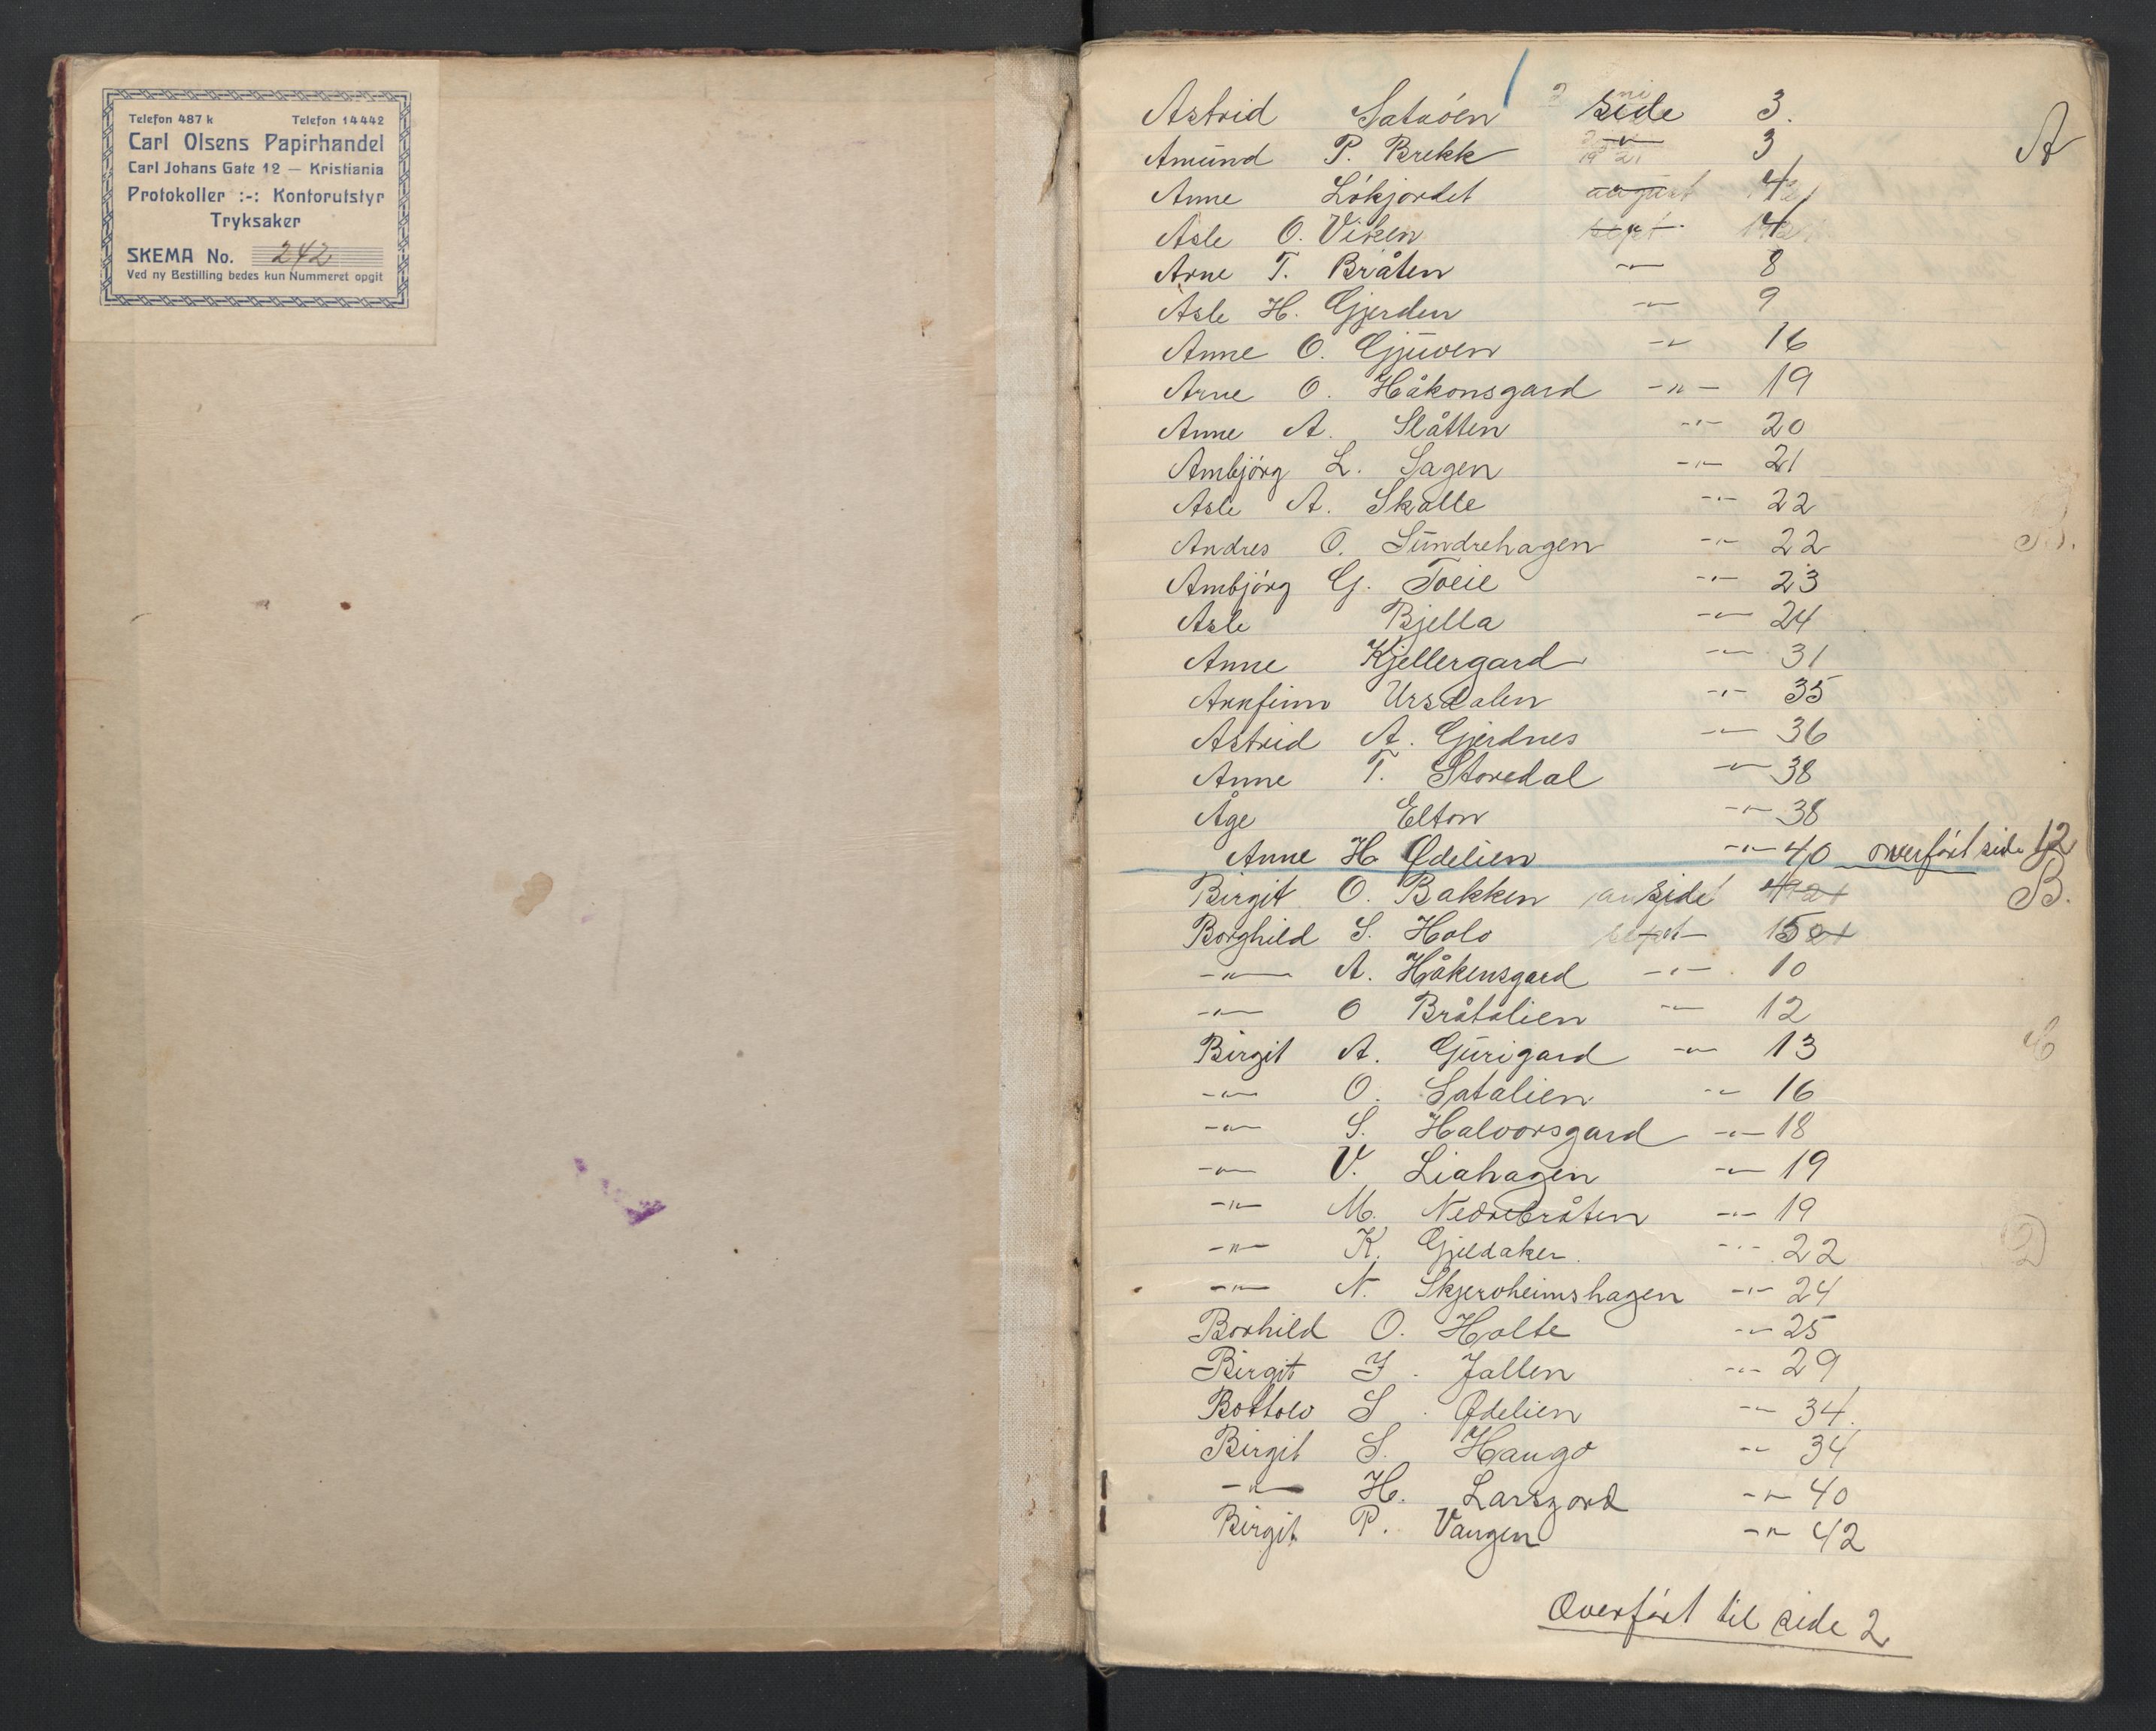 Telefon 487 k Telefon 14442
Carl Olsens Papirhandel
Carl Johans Gate 12 — Kristiania
Protokoller :-: Kontorutstyr
Tryksaker
SKEMA No. 242
Ved ny Bestilling bedes kun Nummeret opgit
1
Astrid Satøen side 3.
A
Amund P. Brekk -"- 3
Anne Lökjordet -"- 4
Asle O. Viken -"- 4
Arne T. Bråten -"- 8
Asle H. Gjerden -"- 9
Anne O. Gjuven -"- 16
Arne O. Håkonsgard -"- 19
Anne A. Slåtten -"- 20
Ambjörg L. Sagen -"- 21
Asle A. Skølte -"- 22
Andres O. Sundrehagen -"- 22
B.
Ambjörg G. Tveie -"- 23
Asle Bjella -"- 24
Anne Kjellergard -"- 31
Arnfinn Ursdalen -"- 35
Astrid A. Gjerdnes -"- 36
Anne T. Storedal -"- 38
Åge Elton -"- 38
Anne H. Ødelien -"- 40 overfört side 12
B.
Birgit O. Bakken side 4
Borghild S. Holo -"- 5
-"- A. Håkensgard -"- 10
-"- O Bråtalien -"- 12
Birgit A. Gurigard -"- 13
C
-"- O. Satalien -"- 16
-"- S. Halvorsgard -"- 18
-"- V. Liahagen -"- 19
-"- M. Nedrebråten -"- 19
-"- K. Gjeldaker. -"- 22
-"- N. Skjervheimshagen -"- 24
Borhild O. Holte -"- 25
Birgit I. Jallen -"- 29
Bottolv S. Ødelien -"- 34.
Birgit S. Haugo -"- 34
-"- H. Larsgard -"- 40
Birgit P. Vangen -"- 42
Overfört til side 2